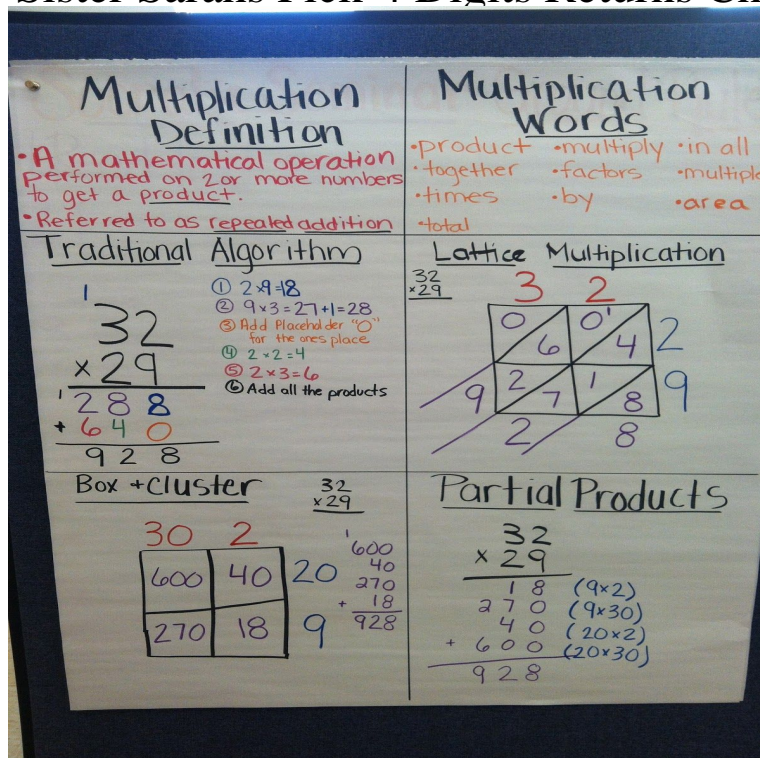 Multiplication
Definition
• A mathematical operation
performed on 2 or more numbers
to get a product.
• Referred to as repeated addition
Multiplication
Words
• product • multiply • in all
• together • factors • multiple
• times • by • area
• total
Traditional Algorithm
1
32
×29
1
288
+ 640
928
① 2×9=18
② 9×3=27+1=28
③ Add Placeholder "0"
for the ones place
④ 2×2=4
⑤ 2×3=6
⑥ Add all the products
Lattice Multiplication
32
×29
3 2
0 6 0 1 4 2
9 2 7 1 8 9
2 8
Box + cluster
32
×29
30 2
600 40 20
270 18 9
1
600
40
270
+ 18
928
Partial Products
32
× 29
18 (9×2)
270 (9×30)
40 (20×2)
+ 600 (20×30)
928